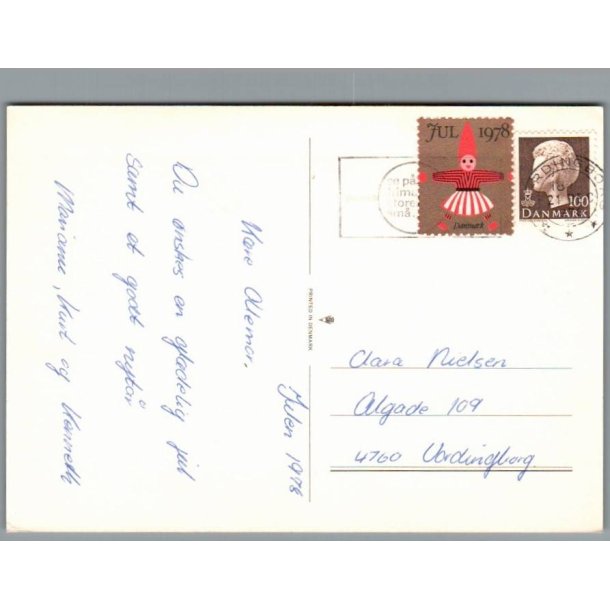 Julen 1978
Kære Oldemor.
Du ønskes en glædelig jul
samt et godt nytår
Mariann, Kurt og Kenneth
PRINTED IN DENMARK
JUL 1978
Danmark
100
DANMARK
Clara Nielsen
Algade 109
4760 Vordingborg.